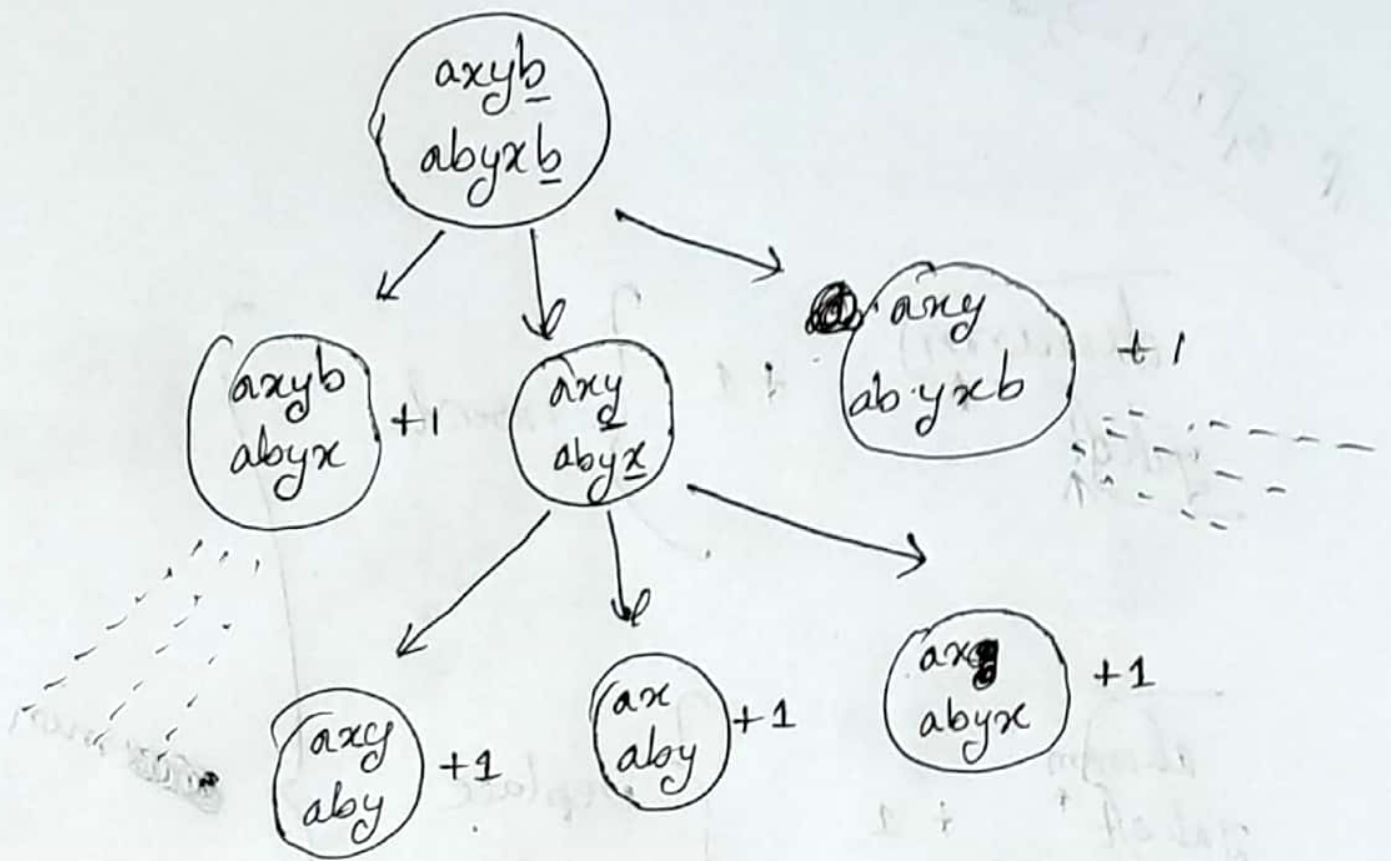 axyb
abyxb
axyb
abyx
+1
axy
abyx
axy
abyxb
+1
axy
aby
+1
ax
aby
+1
ax
abyx
+1